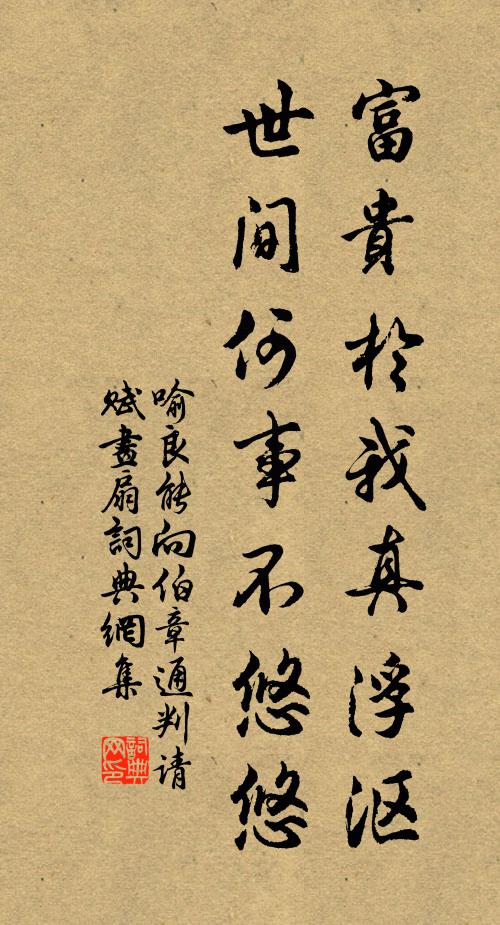 富貴於我真浮沤
世间何事不悠悠
喻良能向伯章通判请
赋畫扇詞典網集
詞典网印